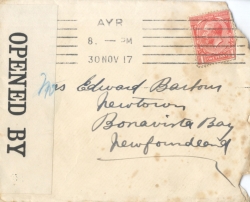 OPENED BY
AYR
8. - PM
30 NOV 17
Mrs Edward Barbour
Newtown
Bonavista Bay
Newfoundland